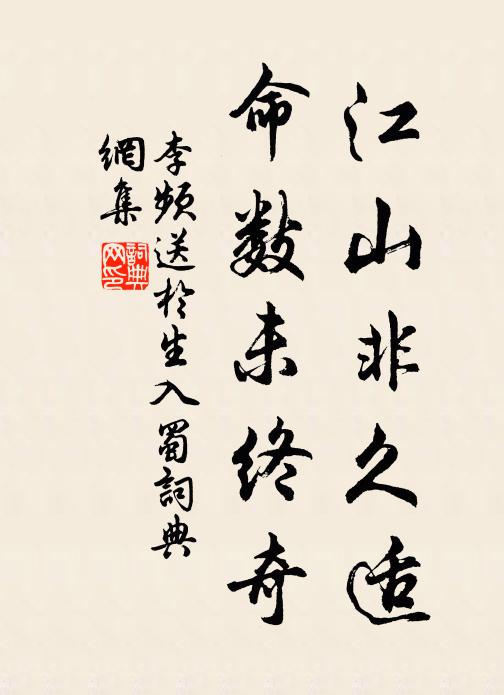 江山非久适
命数未终奇
李频送於生入蜀詞典
網集
詞典
网印